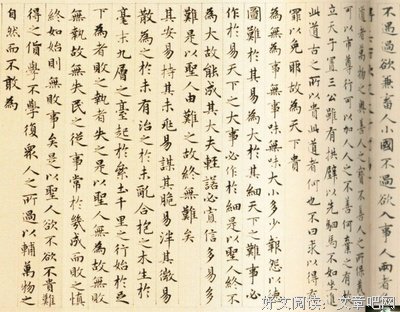 不過過欲兼畜人小國不過欲入事人兩者
道者萬物之奧善人之寶不善人之所保美
可以市尊行可以加人人之不善何棄之有故
立天子置三公雖有拱璧以先駟馬不如坐進
此道古之所以貴此道者何也不曰求以得有
罪以免耶故為天下貴
為無為事無事味無味大小多少報怨以德
圖難於其易為大於其細天下之難事必
作於易天下之大事必作於細是以聖人終不
為大故能成其大夫輕諾必寡信多易多
難是以聖人由難之故終無難矣
其安易持其未兆易謀其脆易泮其微易
散為之於未有治之於未亂合抱之木生於
毫末九層之臺起於絫土千里之行始於足
下為者敗之執者失之是以聖人無為故無敗
無執故無失民之從事常於幾成而敗之慎
終如始則無敗事矣是以聖人欲不欲不貴難
得之貨學不學復眾人之所過以輔萬物之
自然而不敢為
好文阅读：文章吧网